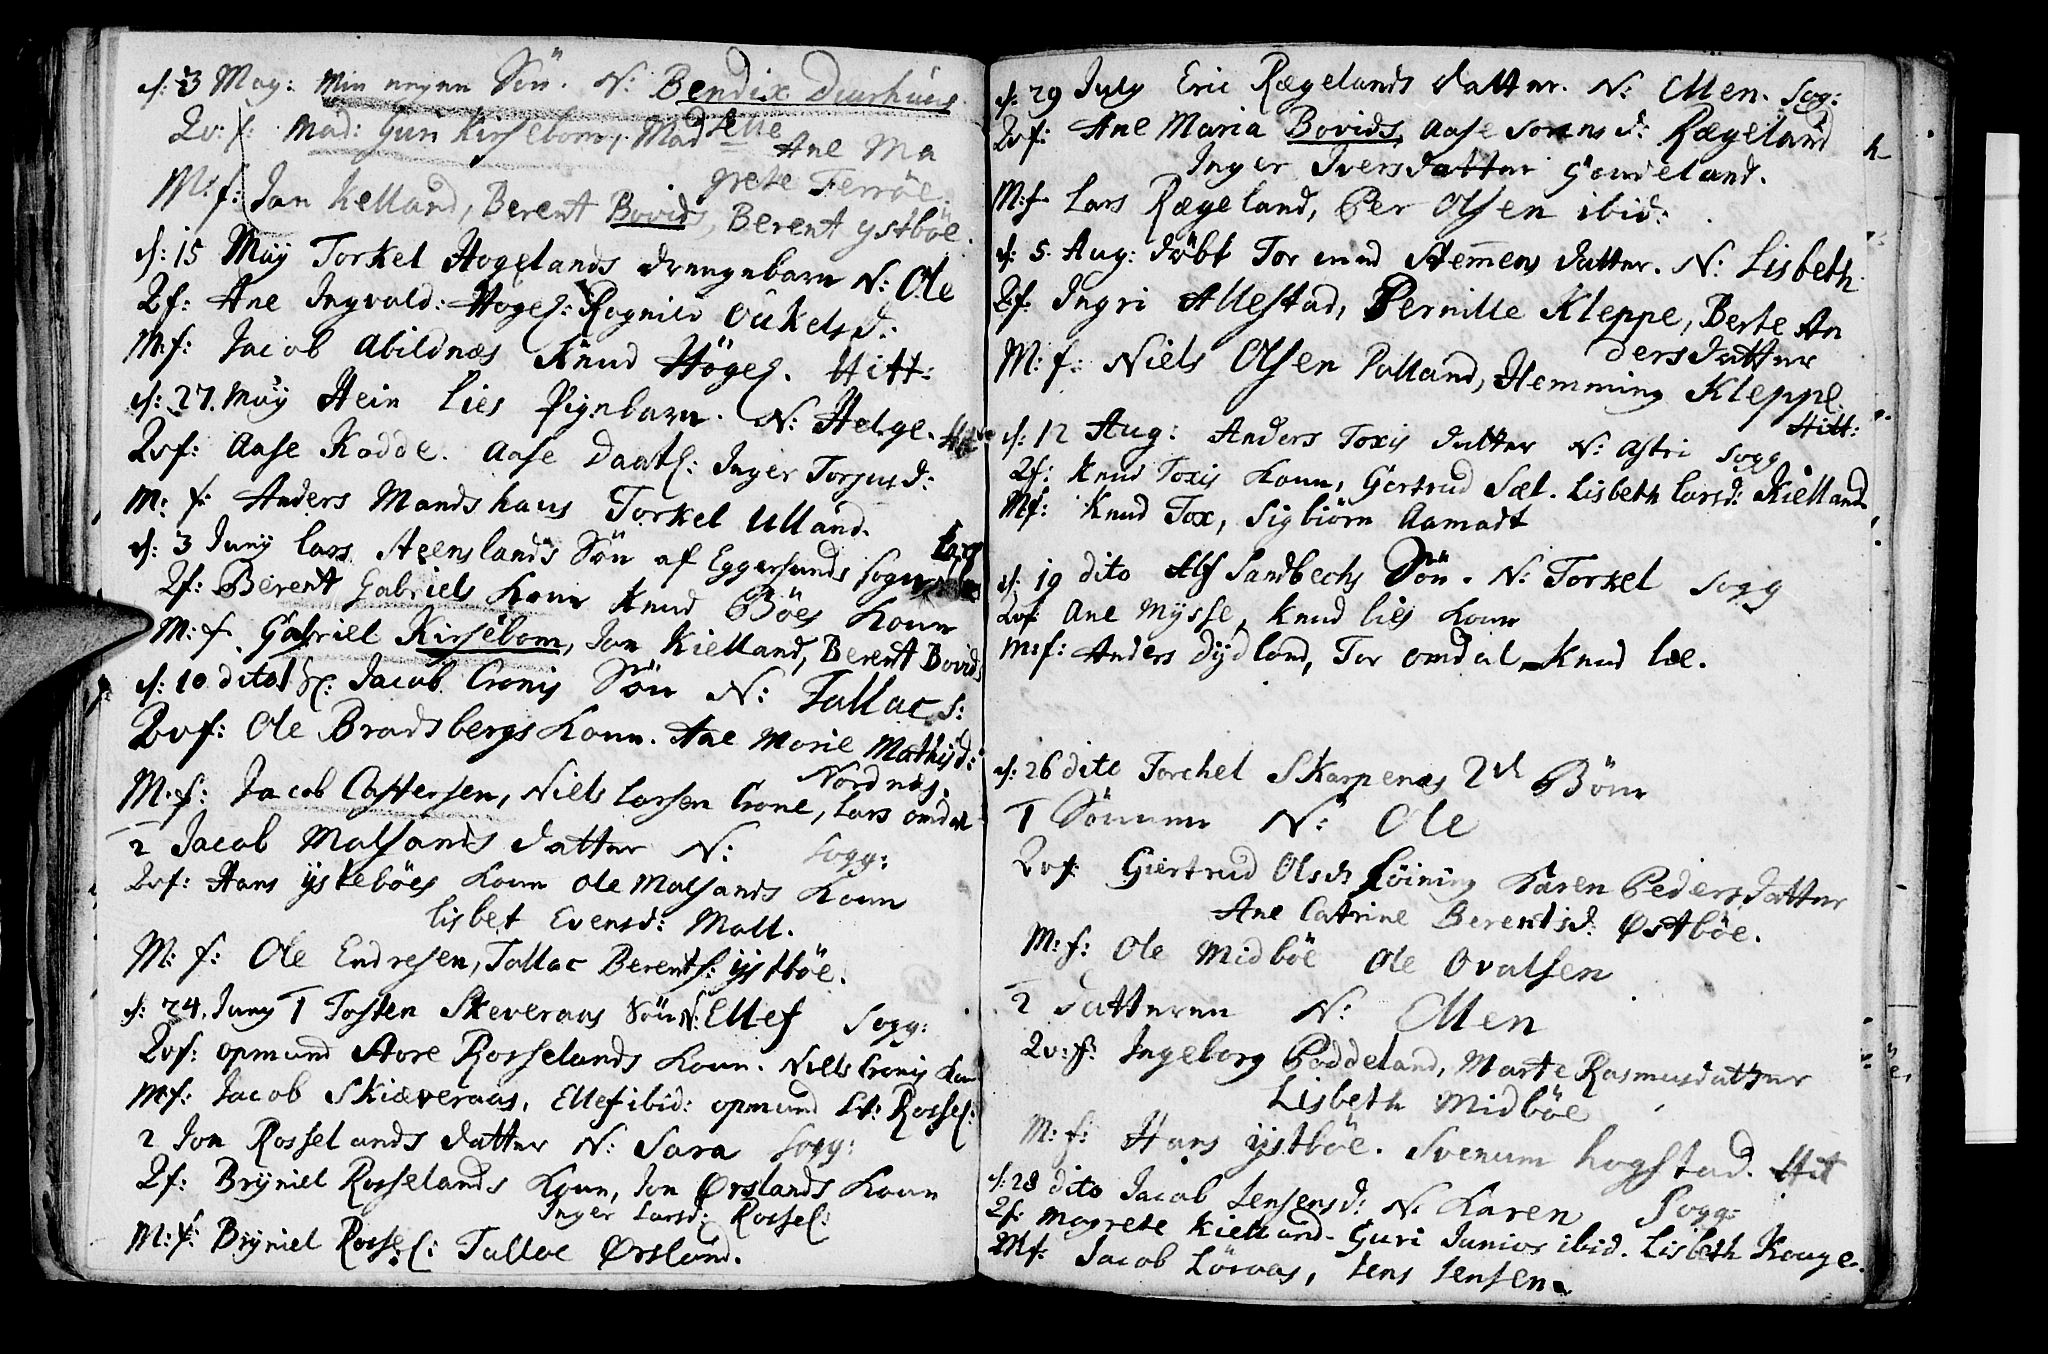 d: 3 May: Min egen Sön. N: Bendix Duurhuus
Qv: f: Mad: Guri Kirsebom, Madselle Ane Ma
grete Ferröe.
M: f: Jan Kelland, Berent Bovids, Berent ystböe.
d: 15 Maÿ Torkel Hogelands drengebarn N: Ole
Qf: Ane Ingvald: Hogel: Rognild Oukelsd:
M:f: Jacob Abildnæs Knud Högel. Hitt:
d: 27. Maÿ Stein Lies Pigebarn. N: Helge.
Qvf: Aase Kodde. Aase Daatl: Inger Torjusd:
M: f: Anders Mandshaus Torkel Ulland.
d: 3 Junÿ Lars Steenslands Sön af Eggersunds Sogn N: Lars
Qf: Berent Gabriels Kone Knud Böes Kone
M: f. Gabriel Kirsebom, Jan Kielland, Berent Bovids
d: 10 dito 1 Sl: Jacob Cronis Sön N: Tallac S:
Qvf: Ole Bradsbergs Kone. Ane Marie Mathisd:
Nordnæs.
M: f: Jacob Castersen, Niels Larsen Crone, Lars omdal
2 Jacob Malsands datter N: Sogg:
Qvf: Hans ÿsteböes Kone Ole Malsands Kone
Lisbet Evensd: Mall.
M: f: Ole Endresen, Tallac Berentz: ÿstböe.
d: 24. Juny 1 Tosten Skeveraas Sön N: Ellef Sogg:
Qvf: opmund Store Rosselands Kone. Niels Cronis Kone
Mf: Jacob Skiæveraas, Ellef ibid: opmund St: Rossel:
2 Jon Rosselands datter N: Sara Sogg:
Qf: Brÿniel Rosselands Kone, Jon Ørslands Kone
Inger Larsd: Rossel:
M: f: Brÿniel Rossel: Tallac Ørsland.
d: 29 July Eric Rægelands datter. N: Ellen. Sog:
Qvf: Ane Maria Bovids, Aase Sorensd: Rægeland
Inger Iversdatter Gendeland.
M:f. Lars Rægeland, Per Olsen ibid:
d: 5. Aug: döbt Tor Stemmens datter. N: Lisbeth.
Qf. Ingri Allestad, Pernille Kleppe, Berte An
dersdatter
M: f: Niels Olsen Palland, Hemming Kleppe
Hitt:
d: 12 Aug: Anders Toxis datter N: Astri Sogg
Qf: Knud Toxis Kone, Gertrud Sæl. Lisbeth Larsd: Kielland
Mf: Knud Tox, Sigbiörn Aamodt
d: 19 dito Alf Sandbechs Sön. N: Torkel Sogg
Qvf: Ane Mÿsse, Knud lies Kone
M:f: Anders Dÿdland, Tor omdal, Knud lee.
d: 26 dito Torchel Skarpenæs 2de Börn
1 Sönnen N: Ole
Qvf: Giertrud Olsd: Löining Karen Pedersdatter
Ane Catrine Berentsd: Østböe.
M: f: Ole Midböe Ole Ovalsen
2 Datteren N: Ellen
Qv: f: Ingeborg Poddeland, Marte Rasmusdatter
Lisbeth Midböe
M: f: Hans ÿstböe. Svenum Hogstad. Hit
d: 28 dito Jacob Jensens d: N. Karen Sogg:
Qf: Magrete Kielland. Guri Junior ibid. Lisbeth Houge.
Mf: Jacob Löraas, Jens Jensen.